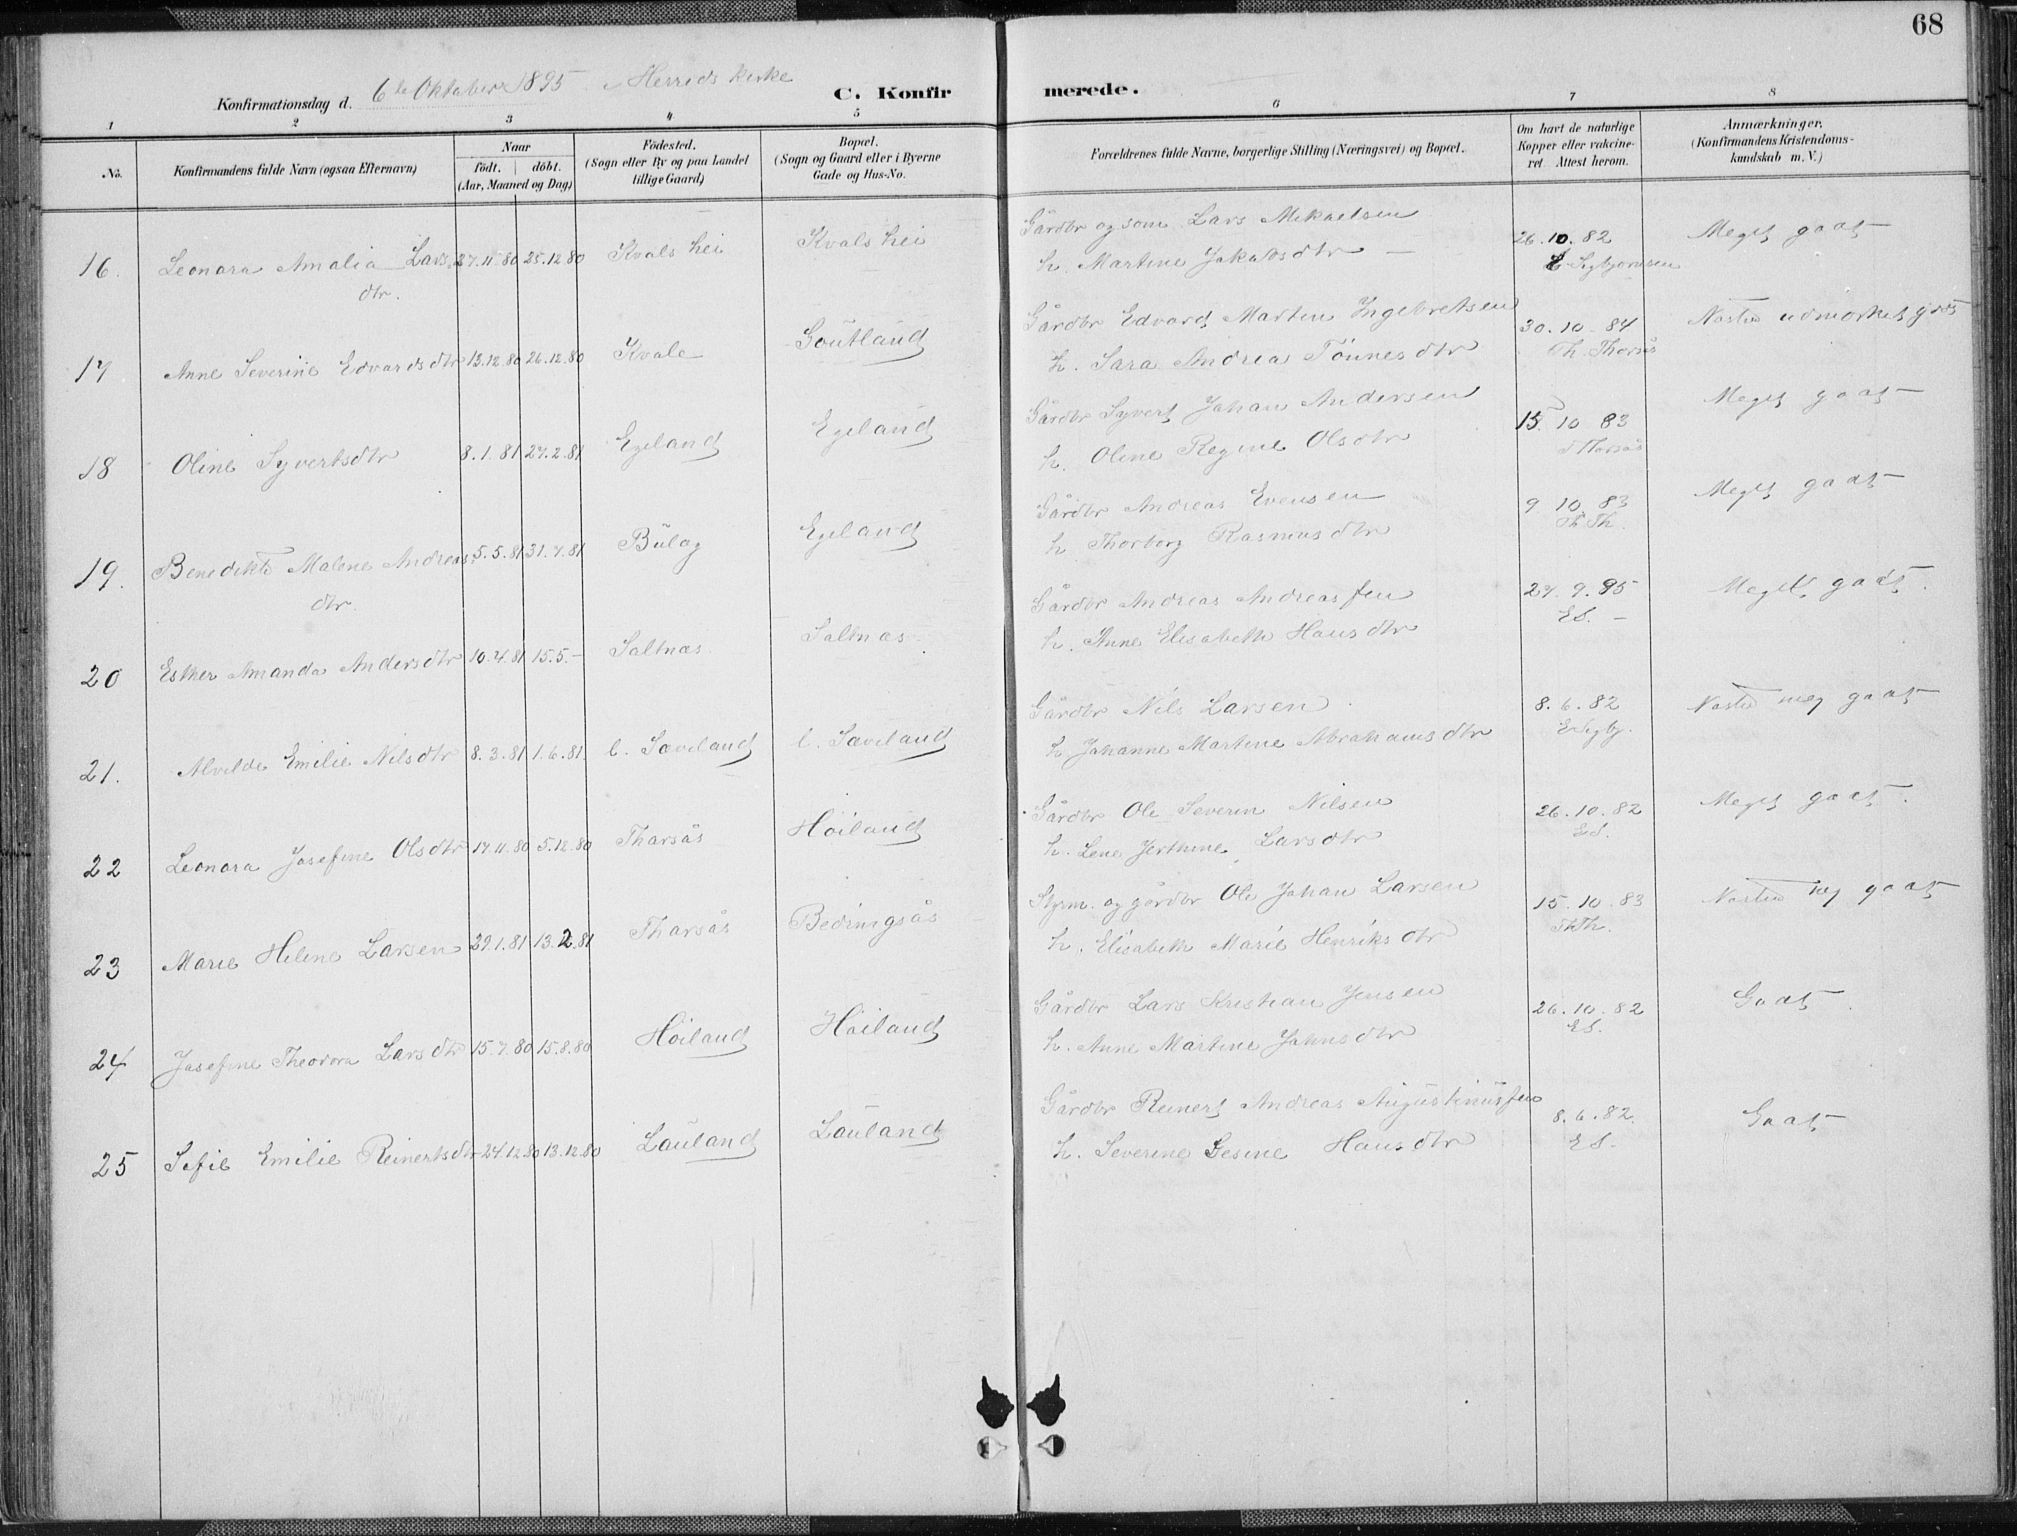 68
Konfirmationsdag d. 6te Oktober 1895 i Herreds kirke
C. Konfirmerede.
1 2 3 4 5 6 7 8
No.
Konfirmandens fulde Navn (ogsaa Efternavn)
Naar
födt. döbt.
(Aar, Maaned og Dag)
Födested.
(Sogn eller By og paa Landet
tillige Gaard)
Bopæl.
(Sogn og Gaard eller i Byerne
Gade og Hus-No.
Forældrenes fulde Navne, borgerlige Stilling (Næringsvei) og Bopæl.
Om havt de naturlige
Kopper eller vakcine-
ret. Attest herom.
Anmærkninger.
(Konfirmandens Kristendoms-
kundskab m. V.)
16. Leonora Amalia Lars 27.11.80 25.12.80 Kvalshei Kvalshei Gårdbr og som Lars Mikaelsen 26.10.82 Meget godt
dtr. h. Martine Jakobsdtr
17 Anne Severine Edvardsdtr 13.12.80 26.12.80 Kvale Goutland Gårdbr Edvard Martin Ingebretsen 30.10.84 Næsten udmærket godt
h. Sara Andrea Tönnesdtr Th. Thorsås
18 Oline Syvertsdtr 8.1.81 27.2.81 Egeland Egeland Gårdbr Syvert Johan Andersen 15.10 83 Meget godt
h. Oline Regine Olsdtr Thorsås
19. Benedikte Malene Andreas 5.5.81 31.7.81 Bulag Egeland Gårdbr Andreas Evensen 9 10 83 Meget godt
dtr. h Thorborg Rasmusdtr Th Th.
20 Esther Amanda Andersdtr 10.4.81 15.5.- Saltnæs Saltnæs Gårdbr Andreas Andreassen 27.9.95 Meget godt.
h. Anne Elisabeth Hansdtr ES.
21. Alvilde Emilie Nilsdtr 8.3.81 1.6.81 l. Saveland l. Saveland Gårdbr Nils Larsen 8.6.82 Næsten meg godt
h Johanne Martine Abrahamsdtr
22 Leonora Josefine Olsdtr 17.11.80 5.12.80 Tharsås Höiland Gårdbr Ole Severin Nilsen 26.10.82 Meget godt.
h. Lene Jerthine Larsdtr ES.
23 Marie Helene Larsen 29.1.81 13.2.81 Tharsås Bedringsås Styrm. og gårdbr Ole Johan Larsen 15.10.83 Næsten meg godt
h. Elisabeth Marie Henriksdtr ThTh.
24 Josefine Theodora Larsdtr 15.7.80 15.8.80 Höiland Höiland Gårdbr Lars Kristian Jensen 26.10.82 Godt
h. Anne Martine Johnsdtr ES.
25 Sofie Emilie Reinertsdtr 24.12.80 13.12.80 Lauland Lauland Gårdbr Reinert Andreas Augustinussen 8.6.82. Godt
h. Severine Gesine Hansdtr ES.